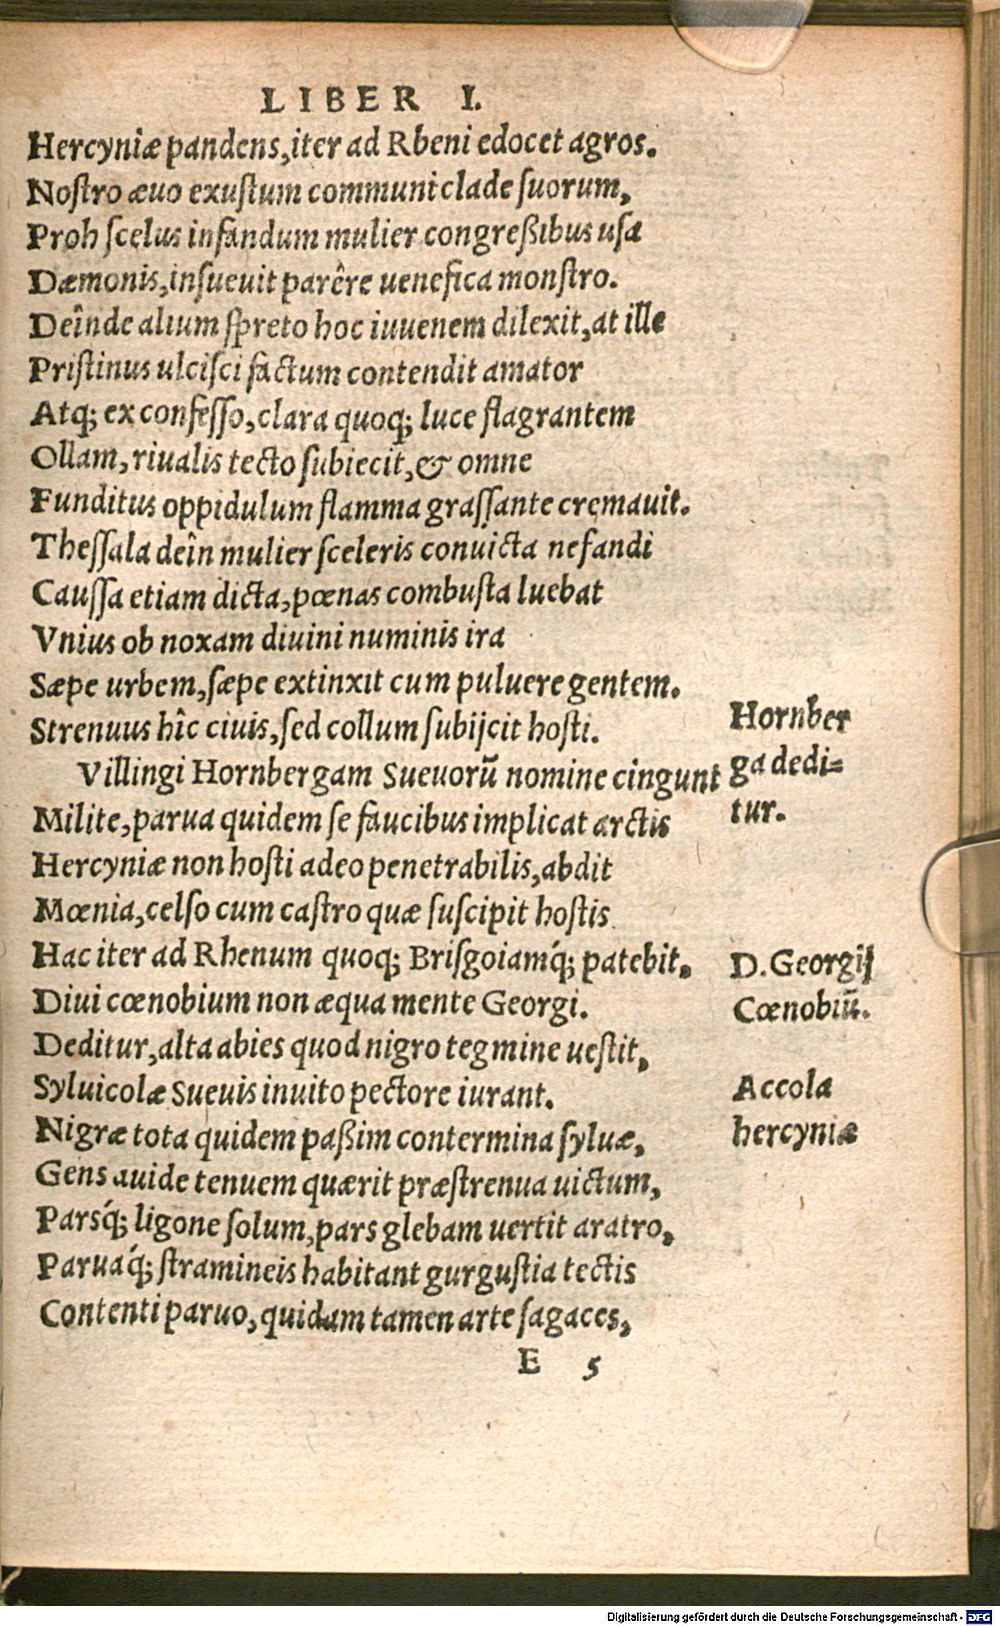 LIBER I.
Hercyniæ pandens, iter ad Rbeni edocet agros.
Noſtro æuo exuſtum communi clade ſuorum,
Proh ſcelus infandum mulier congreßibus uſa
Dæmonis, inſueuit parêre uenefica monſtro.
Deînde alium ſpreto hoc iuuenem dilexit, at ille
Priſtinus ulciſci factum contendit amator
Atq; ex confeſſo, clara quoq; luce flagrantem
Ollam, riualis tecto ſubiecit, & omne
Funditus oppidulum flamma graſſante cremauit.
Theſſala deîn mulier ſceleris conuicta nefandi
Cauſſa etiam dicta, pœnas combuſta luebat
Vnius ob noxam diuini numinis ira
Sæpe urbem, ſæpe extinxit cum puluere gentem.
Strenuus hîc ciuis, ſed collum ſubijcit hoſti.
Villingi Hornbergam Sueuorũ nomine cingunt
Milite, parua quidem ſe faucibus implicat arctis
Hercyniæ non hoſti adeo penetrabilis, abdit
Mœnia, celſo cum caſtro quæ ſuſcipit hoſtis
Hac iter ad Rhenum quoq; Briſgoiamq́; patebit.
Diui cœnobium non æqua mente Georgi.
Deditur, alta abies quod nigro tegmine ueſtit,
Syluicolæ Sueuis inuito pectore iurant.
Nigræ tota quidem paßim contermina ſyluæ,
Gens auide tenuem quærit præſtrenua uictum,
Parsq́; ligone ſolum, pars glebam uertit aratro,
Paruaq́; ſtramineis habitant gurguſtia tectis
Contenti paruo, quidam tamen arte ſagaces,
E 5
Hornber
ga dedi=
tur.
D. Georgij
Cœnobiũ.
Accola
hercyniæ
Digitalisierung gefördert durch die Deutsche Forschungsgemeinschaft - DFG